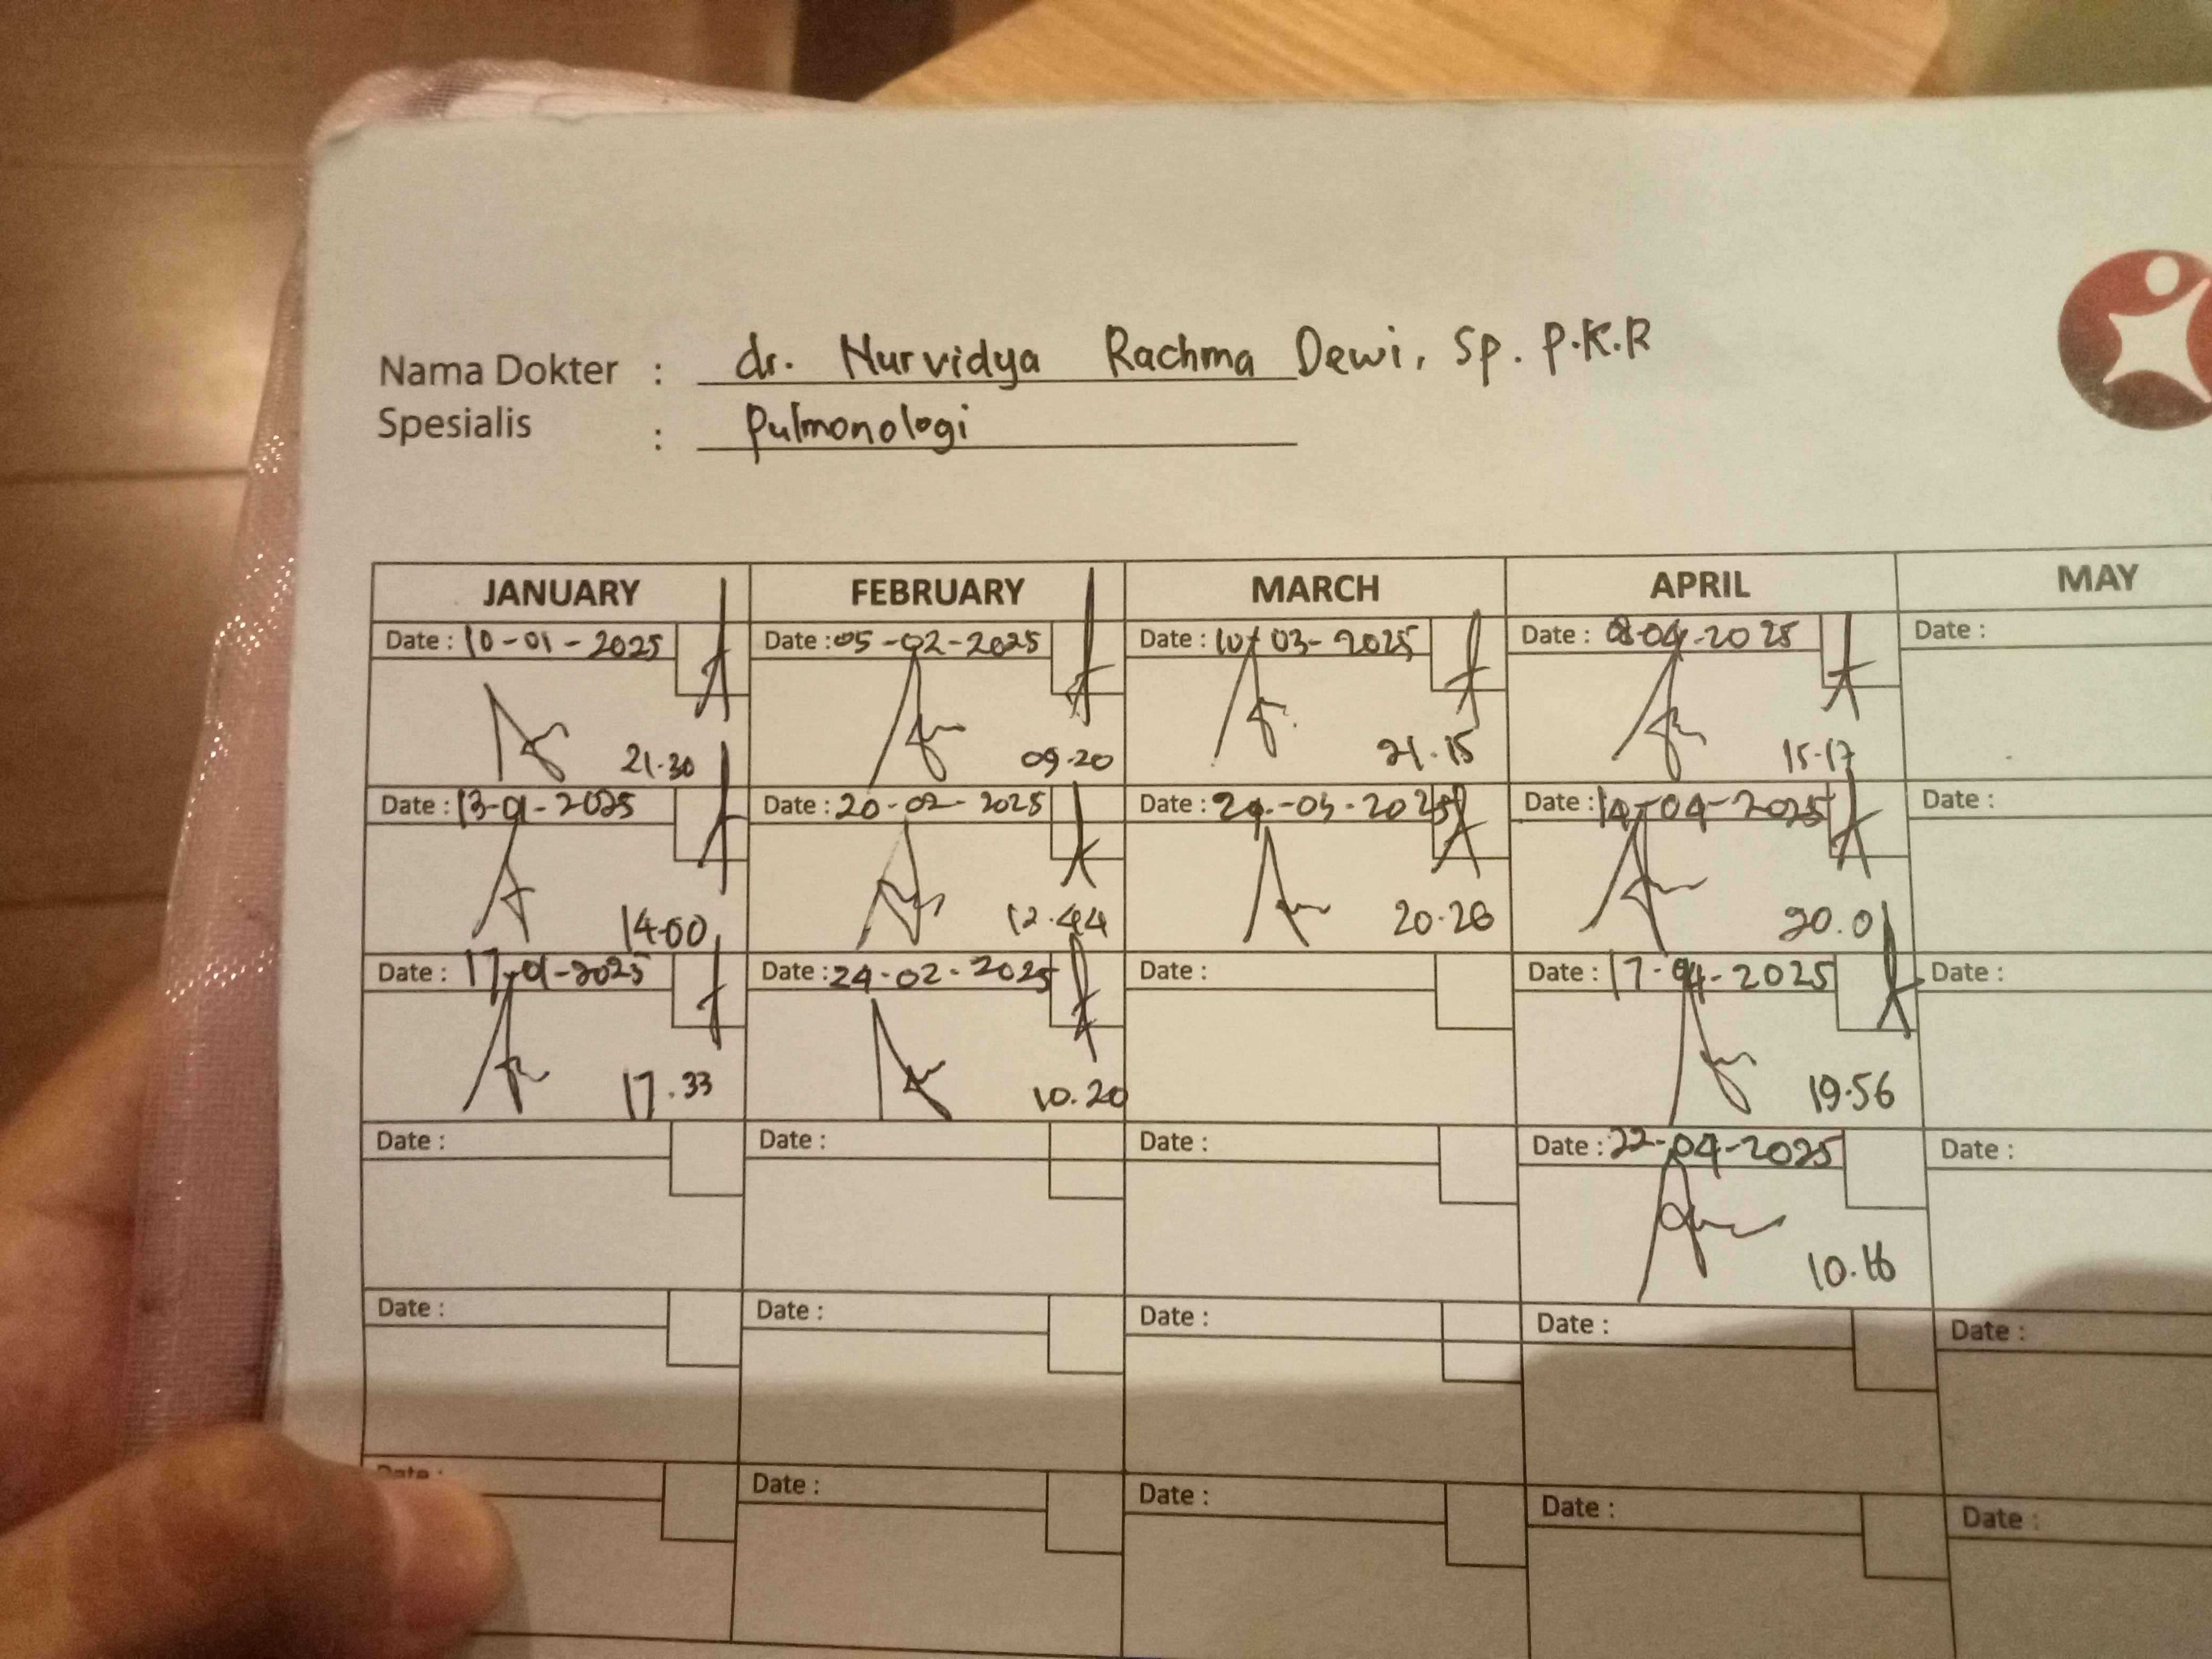 Nama Dokter : dr. Nurvidya Rachma Dewi, Sp. P.K.R
Spesialis : Pulmonologi
JANUARY FEBRUARY MARCH APRIL MAY
Date : 10-01-2025 Date : 05-02-2025 Date : 10-03-2025 Date : 08-04-2025 Date :
21.30 09.20 21.15 15.17
Date : 13-01-2025 Date : 20-02-2025 Date : 24-03-2025 Date : 14-04-2025 Date :
14.00 12.44 20.26 20.0
Date : 17-01-2025 Date : 24-02-2025 Date : Date : 17-04-2025 Date :
17.33 10.20 19.56
Date : Date : Date : Date : 22-04-2025 Date :
10.16
Date : Date : Date : Date : Date :
Date : Date : Date : Date : Date :